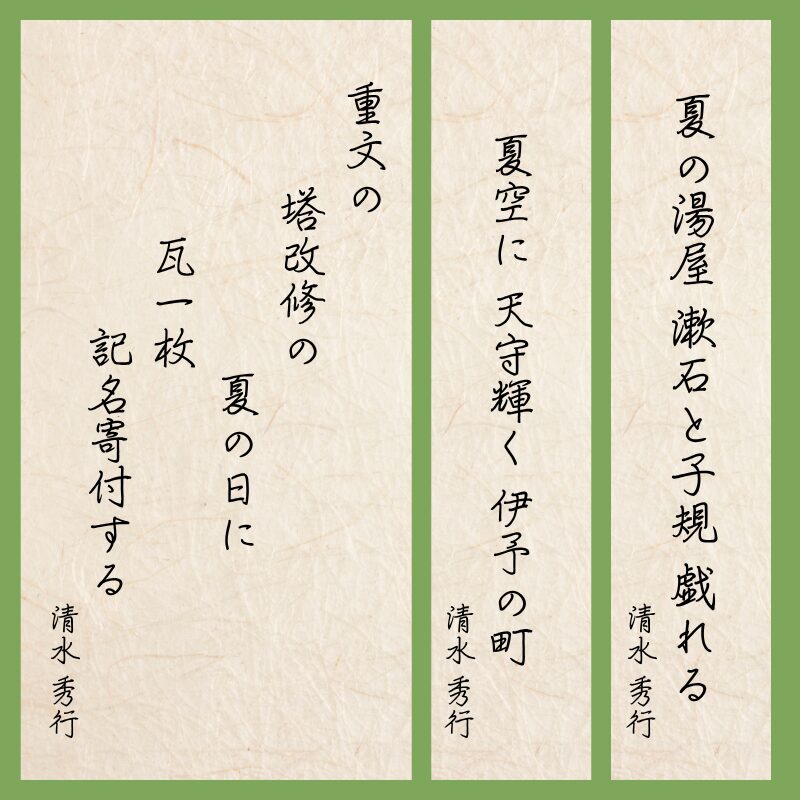 夏の湯屋 漱石と子規 戯れる
清水 秀行
夏空に 天守輝く 伊予の町
清水 秀行
重文の
塔改修の
夏の日に
瓦一枚
記名寄付する
清水 秀行